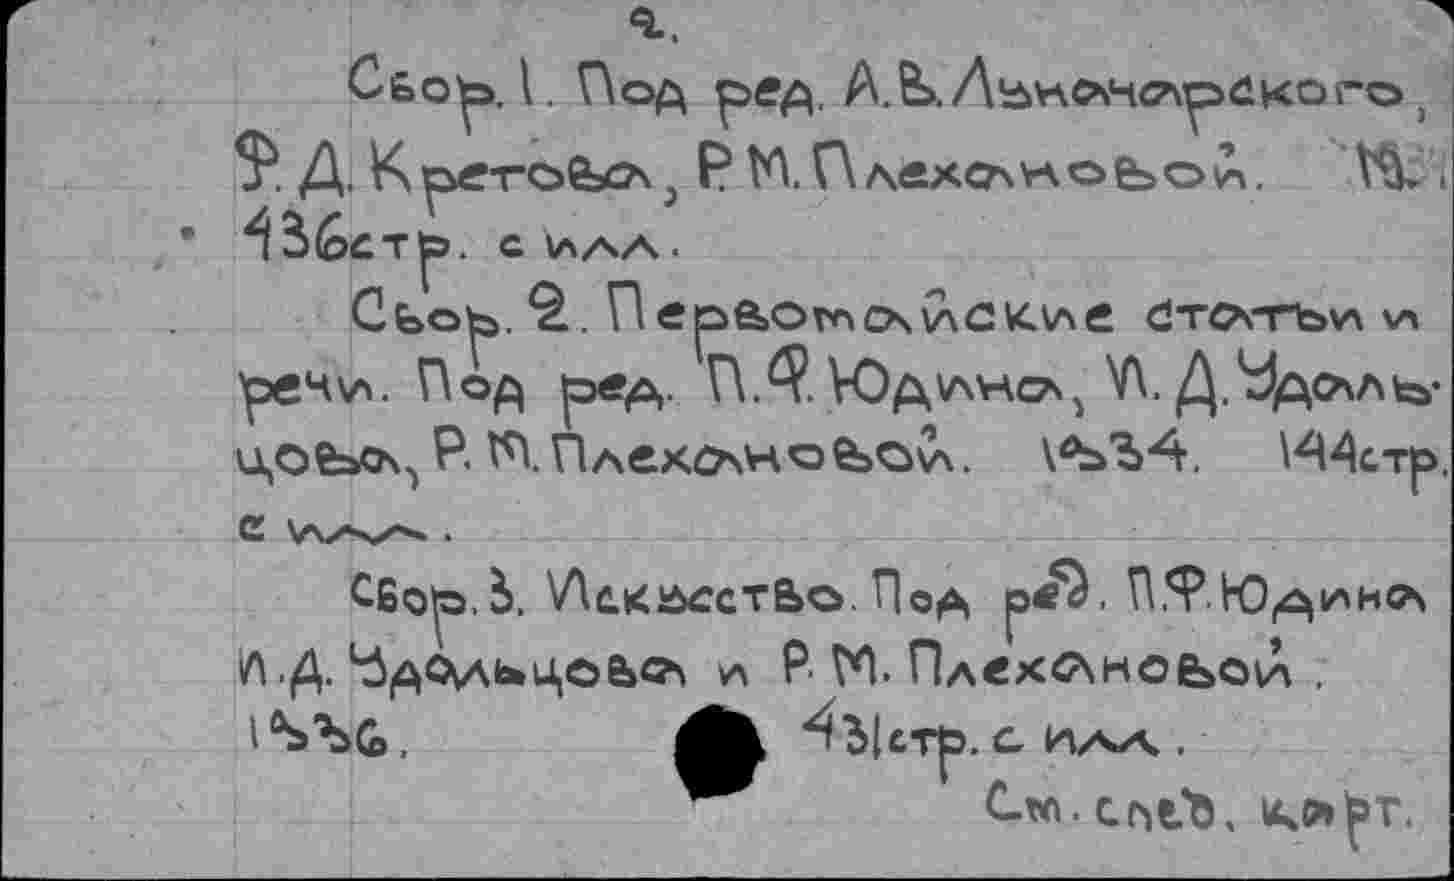 2.
Сбор. 1. Под ред. А.В. Луначарского,
Ф. Д. Кретова, Р. М. Плехановой. М.
436стр. с илл.
Сбор. 2. Первомайские статьи и
речи. Под ред. П.Ф. Юдина, И. Д. Удаль-
цова, Р. М. Плехановой. 1934. 144стр.
с илл.
Сбор. 3. Искусство. Под ред. П.Ф. Юдина
И.Д. Удальцова и Р. М. Плехановой.
1936. 431стр. с илл.
См. след. карт.